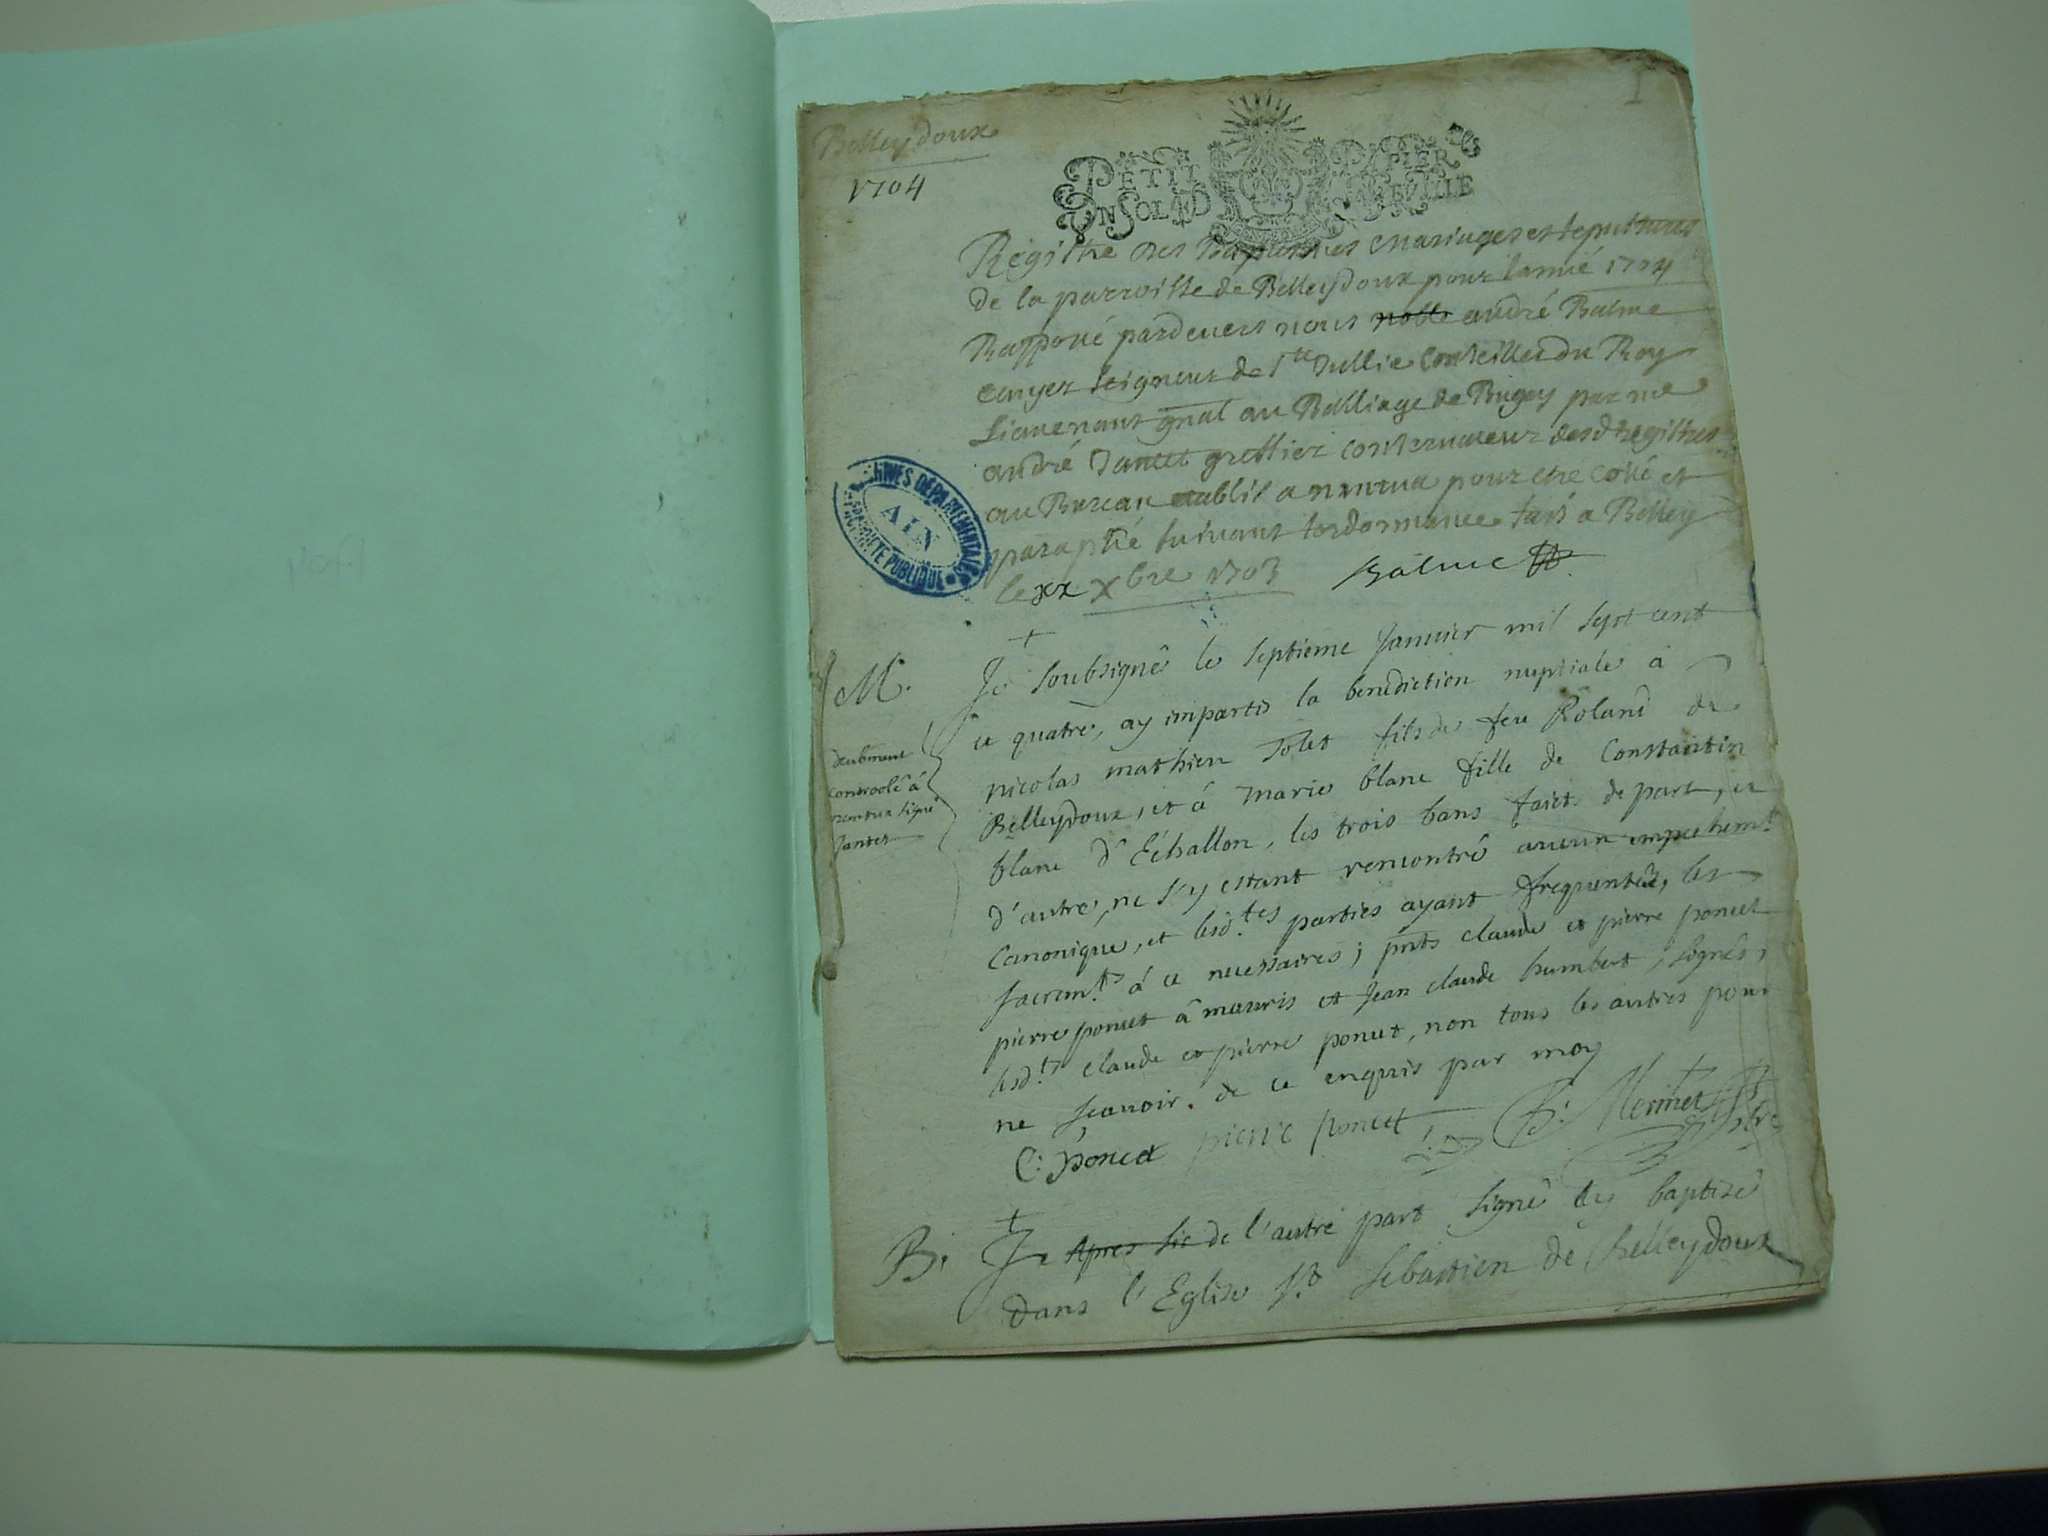 Belleydoux
1704
1
PETIT PAPIER
UN SOL
Registre des Baptesmes mariages et sepultures
de la parroisse de Belleydoux pour lannée 1704
pardevers nous noble andré Balme
seigneur de Ste Jullie Conseiller du Roy
Lieutenant gnal au Balliage de Bugey par me
andré Jantet greffier conservateur desd registres
au Bureau establis a nantua pour etre cotté et
paraphé suivant lordonnance fait a Belley
le xx Xbre 1703 Balme
ARCHIVES DEPARTEMENTALES
AIN
PROPRIETE PUBLIQUE
M.
Je soubsigné le septieme Janvier mil sept cent
et quatre, ay impartis la benediction nuptiale à
nicolas mathieu Tolet fils de feu Roland de
Belleydoux, et à marie blanc fille de Constantin
blanc d'Échallon, les trois bans faicts de part, et
d'autre, ne s'y estant rencontré aucun empechemt
Canonique, et lesd.tes parties ayant frequentés, les
sacremts à ce necessaires; pnts claude et pierre poncet
pierre poncet à mauris et Jean claude humbert, signés,
lesd.ts claude et pierre poncet, non tous les autres pour
ne sçavoir. de ce enquis par moy
controolé à
nantua signé
Jantet
C: Poncet pierre poncet B: Mermet
B.
Je Apres sic de l'autre part signé ay baptisé
dans l'Eglise St Sebastien de Belleydoux